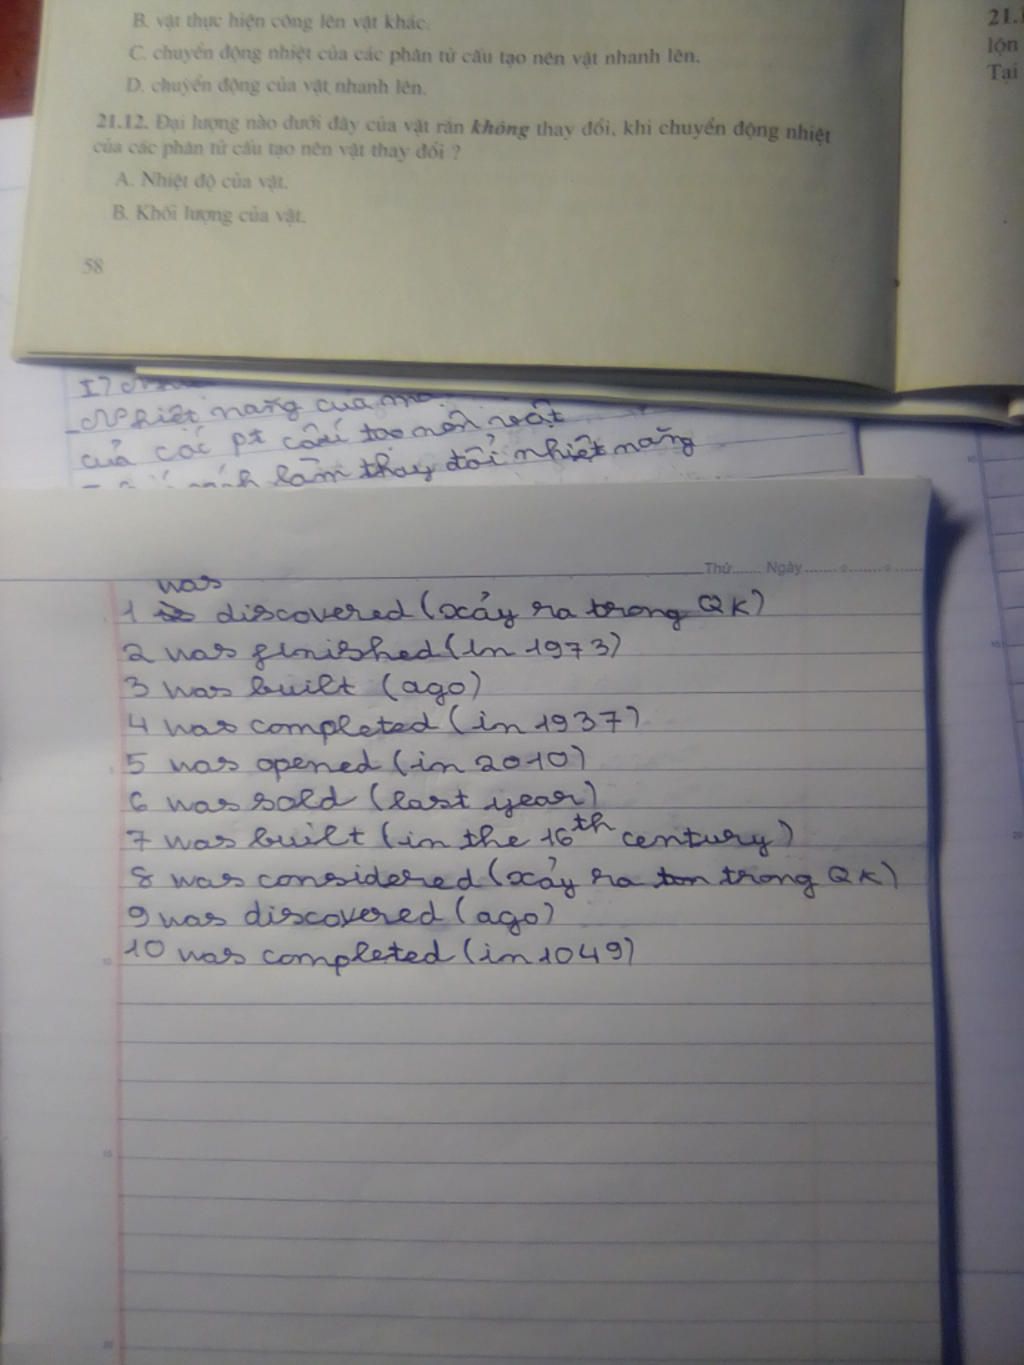 B. vật thực hiện công lên vật khác.
C. chuyển động nhiệt của các phân tử cấu tạo nên vật nhanh lên.
D. chuyển động của vật nhanh lên.
21.12. Đại lượng nào dưới đây của vật rắn không thay đổi, khi chuyển động nhiệt
của các phân tử cấu tạo nên vật thay đổi ?
A. Nhiệt độ của vật.
B. Khối lượng của vật.
58
21.
lộn
Tại
I)
- Nhiệt năng của
của các pt cấu tạo nên vật
làm thay đổi nhiệt năng
Thứ....... Ngày
was
1 is discovered (xảy ra trong QK)
2 was finished (in 1973)
3 was built (ago)
4 was completed (in 1937)
5 was opened (in 2010)
6 was sold (last year)
7 was built (in the 16th century)
8 was considered (xảy ra ton trong QK)
9 was discovered (ago)
10 was completed (in 1049)